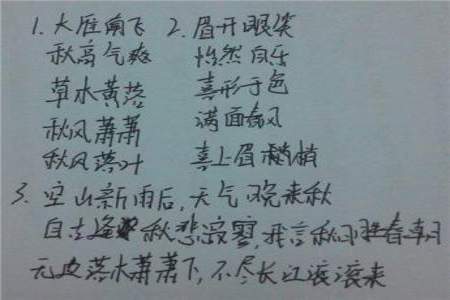 1. 大雁南飞 2. 眉开眼笑
秋高气爽 怡然自乐
草木黄落 喜形于色
秋风萧萧 满面春风
秋风落叶 喜上眉梢
3. 空山新雨后，天气晚来秋
自古逢秋悲寂寥，我言秋日胜春朝
无边落木萧萧下，不尽长江滚滚来